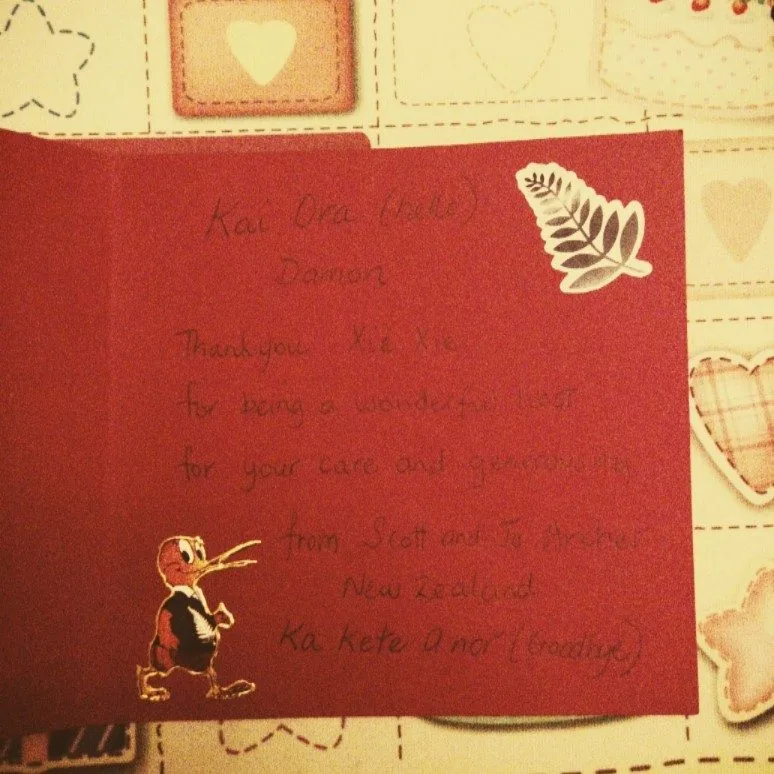 Kai Ora (hello)
Damon
Thankyou Xie Xie
for being a wonderful host
for your care and
from Scott and Jo
New Zealand
Ka Kete Anor (Goodbye)